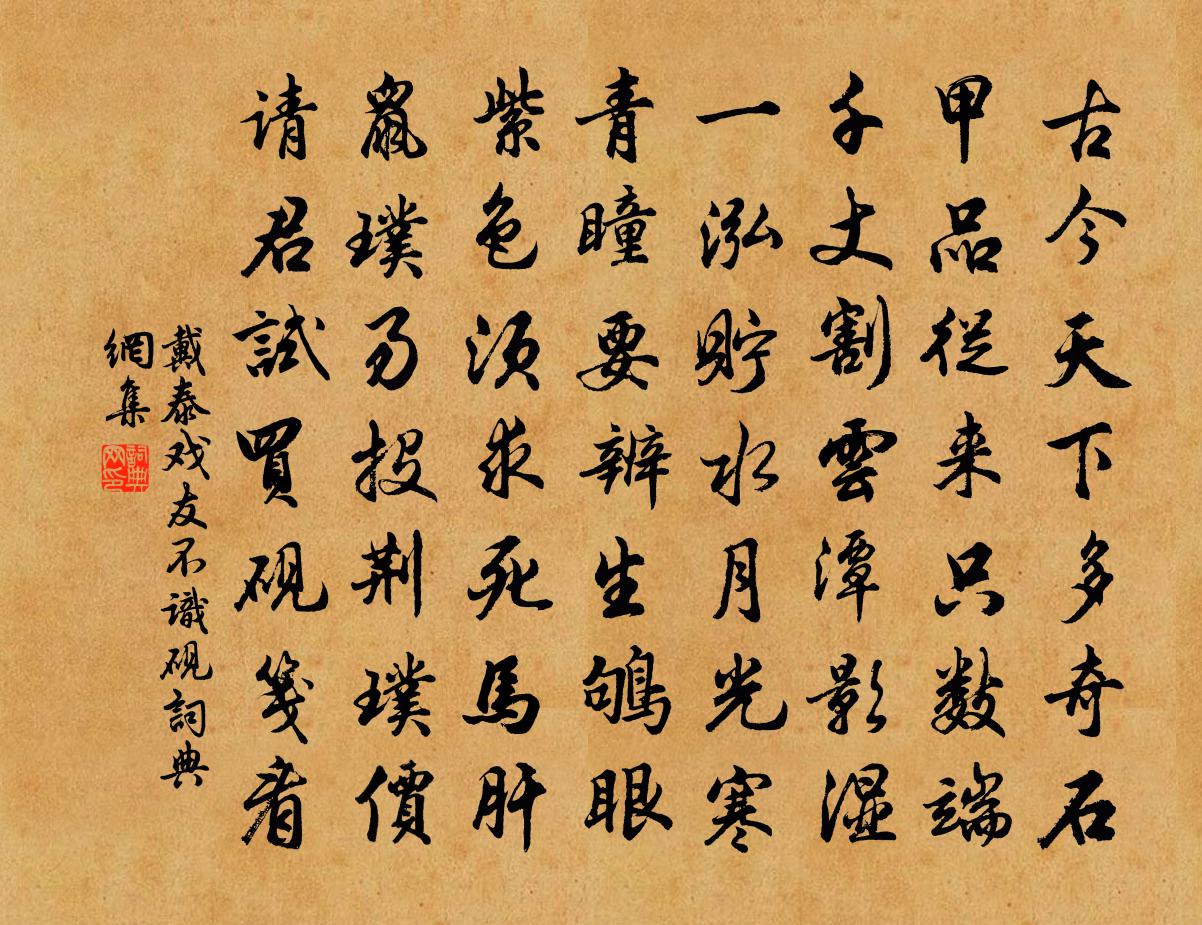 古今天下多奇石
甲品從来只数端
千丈割雲潭影湿
一泓貯水月光寒
青瞳要辨生鴝眼
紫色须求死馬肝
鼠璞易投荆璞價
请君試買砚箋看
戴泰戏友不識砚詞典
網集
詞典